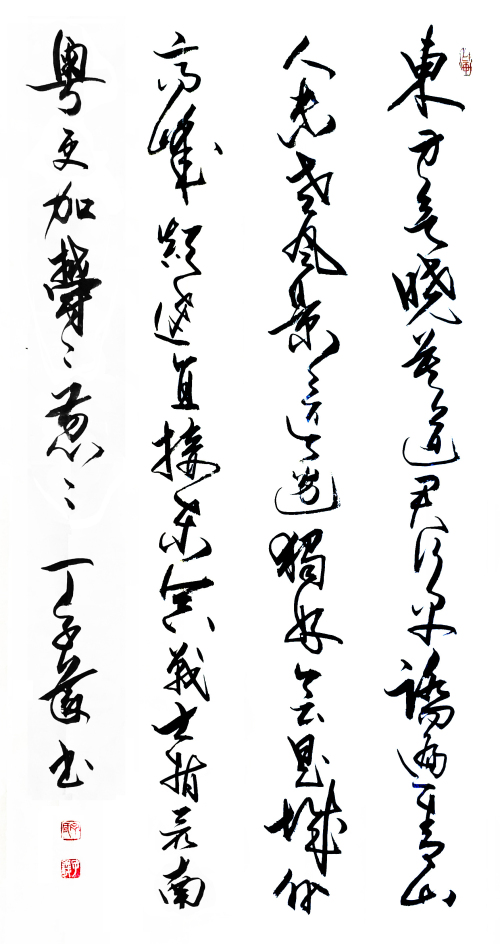 東方欲晓莫道君行早踏遍青山
人未老風景這邊獨好會昌城外
高峰顛連直接東溟戰士指看南
粤更加鬱〻葱〻 丁子 书